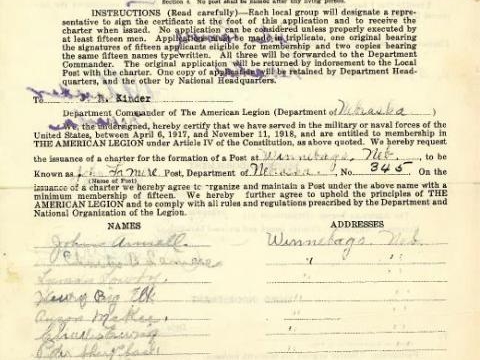 Section 4. No post shall be named after any living person.
INSTRUCTIONS (Read carefully)—Each local group will designate a repre-
sentative to sign the certificate at the foot of this application and to receive
charter when issued. No application can be considered unless properly executed by
at least fifteen men. Application must be made in triplicate, one original bearing
the signatures of fifteen applicants eligible for membership and two copies bearing
the same fifteen names typewritten. All three will be forwarded to the Department
Commander. The original application will be returned by indorsement to the Local
Post with the charter. One copy of application will be retained by Department Head-
quarters, and the other by National Headquarters.
To R. Kinder
Department Commander of The American Legion (Department of Nebraska)
We, the undersigned, hereby certify that we have served in the military or naval forces of the
United States, between April 6, 1917, and November 11, 1918, and are entitled to membership in
THE AMERICAN LEGION under Article IV of the Constitution, as above quoted. We hereby request
the issuance of a charter for the formation of a Post at Winnebago, Neb. to be
Known as John La Mere Post, Department of Nebraska, No. 345 On the
(Name of Post)
issuance of a charter we hereby agree to organize and maintain a Post under the above name with a
minimum membership of fifteen. We hereby further agree to uphold the principles of THE
AMERICAN LEGION and to comply with all rules and regulations prescribed by the Department and
National Organization of the Legion.
NAMES ADDRESSES
John Winnebago, Neb.
" "
" "
Henry Big Elk " "
McKee " "
Charles Ewing " "
"